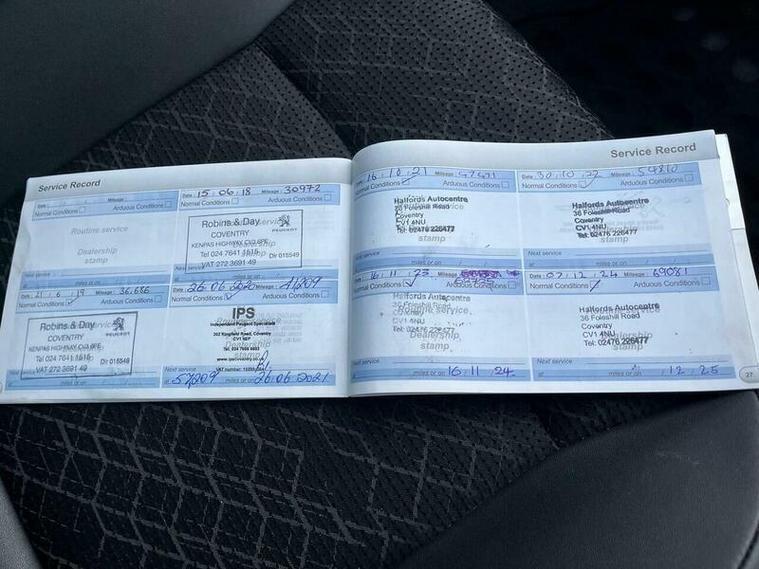 Service Record
Normal Conditions
Arduous Conditions
Routine service
Dealership
stamp
Next service
at miles or on
Date: 15.06.18 Mileage: 30972
Normal Conditions ✓ Arduous Conditions
Robins & Day
PEUGEOT
COVENTRY
KENPAS HIGHWAY CV3 6PE
Tel 024 7641 1515 Dlr 015549
VAT 272 3691 49
Date: 21.6.19 Mileage: 36,686
Normal Conditions ✓ Arduous Conditions
Robins & Day
PEUGEOT
COVENTRY
KENPAS HIGHWAY CV3 6PE
Tel 024 7641 1515 Dlr 015549
VAT 272 3691 49
Next service
at miles or on
Date: 26.06.2020 Mileage: 41209
Normal Conditions ✓ Arduous Conditions
IPS
Independent Peugeot Specialists
Coventry
Dealership
stamp
Next service
at 57,209 miles or on 26.06.2021
Service Record
Date: 16.10.21 Mileage:
Normal Conditions ✓ Arduous Conditions
Halfords Autocentre
36 Foleshill Road
Coventry
CV1 4NU
Tel: 02476 226477
stamp
Next service
at miles or on
Date: 30.10.22 Mileage: 54810
Normal Conditions ✓ Arduous Conditions
Halfords Autocentre
36 Foleshill Road
Coventry
CV1 4NU
Tel: 02476 226477
stamp
Next service
at miles or on
Date: 16.11.23 Mileage:
Normal Conditions ✓ Arduous Conditions
Halfords Autocentre
36 Foleshill Road
Coventry
CV1 4NU
Tel: 02476 226477
Dealership
stamp
Next service
at miles or on 16.11.24
Date: 07.12.24 Mileage: 69081
Normal Conditions ✓ Arduous Conditions
Halfords Autocentre
36 Foleshill Road
Coventry
CV1 4NU
Tel: 02476 226477
stamp
Next service
at miles or on 12.25
27